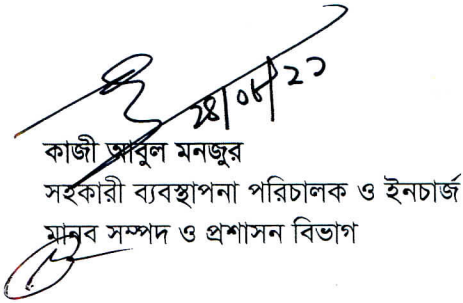 কাজী আবুল মনজুর
সহকারী ব্যবস্থাপনা পরিচালক ও ইনচার্জ
মানব সম্পদ ও প্রশাসন বিভাগ